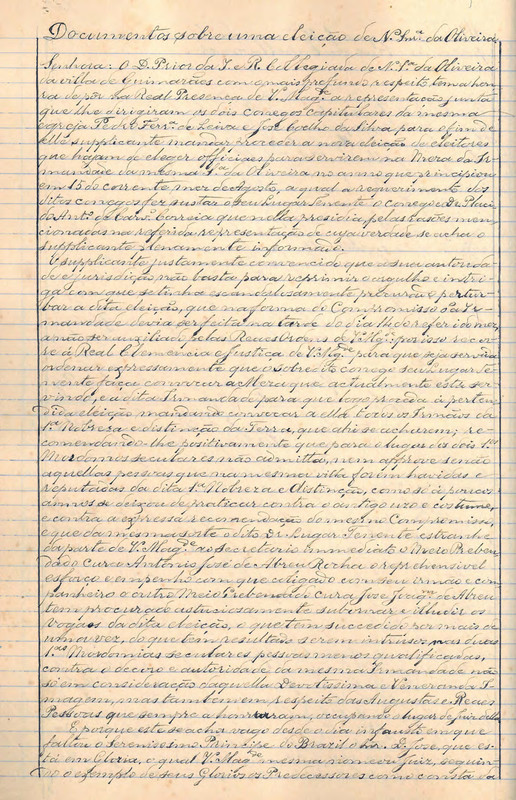 Documentos sobre uma eleição de N.ª Snr.ª da Oliveira
Senhora: O D. Prior da I. e R. Collegiada de N.ª S.ª da Oliveira
da villa de Guimarães com o mais profundo respeito, tem a hon-
ra de pôr na Real Presença de V.ª Mag.de a representação junta
que lhe dirigiram os dois conegos capitulares da mesma
egreja Pedro Ferr.ª de Leiva e José Coelho da Silva para o fim de
elle supplicante mandar proceder a nova eleição de eleitores
que hajam de eleger officiaes para servirem na Meza da Ir-
mandade da mesma S.ª da Oliveira no anno que principiou
em 15 do corrente mez de Agosto, a qual a requerimento dos
ditos conegos fez sustar o seu Lugar Tenente o conego Dr. Placi-
do Ant.º de Carv.º Correia que nella presidia, pelas rasões men-
cionadas na referida representação de cuja verdade se acha o
supplicante plenamente informado.
O supplicante justamente convencido que a sua autorida-
de e jurisdição não basta para reprimir o orgulho e intri-
ga com que se tinha escandalosamente procurado pertur-
bar a dita eleição, que na forma do Compromisso da Ir-
mandade devia ser feita na tarde do dia 14 do referido mez,
a não ser auxiliada pelas Reaes Ordens de V. Mag.e por isso recor-
re á Real Clemencia e Justiça de V. Mag.de para que seja servida
ordenar expressamente que o sobredito conego seu Lugar Te-
nente faça convocar a Meza que actualmente está ser-
vindo, e a dita Irmandade para que logo proceda á perten-
dida eleição mandando convocar a ella todos os Irmãos da
1.ª Nobreza e distincção da Terra, que ahi se acharem; re-
comendando-lhe positivamente que para o lugar dos dois 1.os
Mordomos seculares não admitta, nem approve senão
aquellas pessoas que na mesma villa forem havidas e
reputadas da dita 1.ª Nobreza e Distincção, como só ha poucos
annos se deixou de praticar contra o antigo uzo e costume,
e contra a expressa recomendação do mesmo Compromisso,
e que da mesma sorte o dito D.r Lugar Tenente estranhe
da parte de V. Mag.de ao Secretario immediato o Meio Preben-
dado Cura Antonio José de Abreu Rocha o reprehensivel
esforço e empenho com que coligado com seu irmão e com-
panheiro o outro Meio Prebendado Cura José Joaq.m de Abreu
tem procurado astuciosamente subornar e illudir os
vogaes da dita eleição, o que tem succedido por mais de
uma vez, do que tem resultado serem intrusos nas duas
1.as Mordomias seculares pessoas menos qualificadas,
contra o decoro e autoridade da mesma Irmandade não
só em consideração daquella Devotissima e Veneranda I-
magem, mas tambem em respeito das Augustas e Reaes
Pessoas que sempre a honraram, occupando o lugar de juiz della.
E porque este se acha vago desde o dia infausto em que
fallou o Serenissimo Principe do Brazil o Snr. D. José, que es-
tá em Gloria, o qual V. Mag.de mesma nomeou Juiz, seguin-
do o exemplo de seus Gloriosos Predecessores como consta da